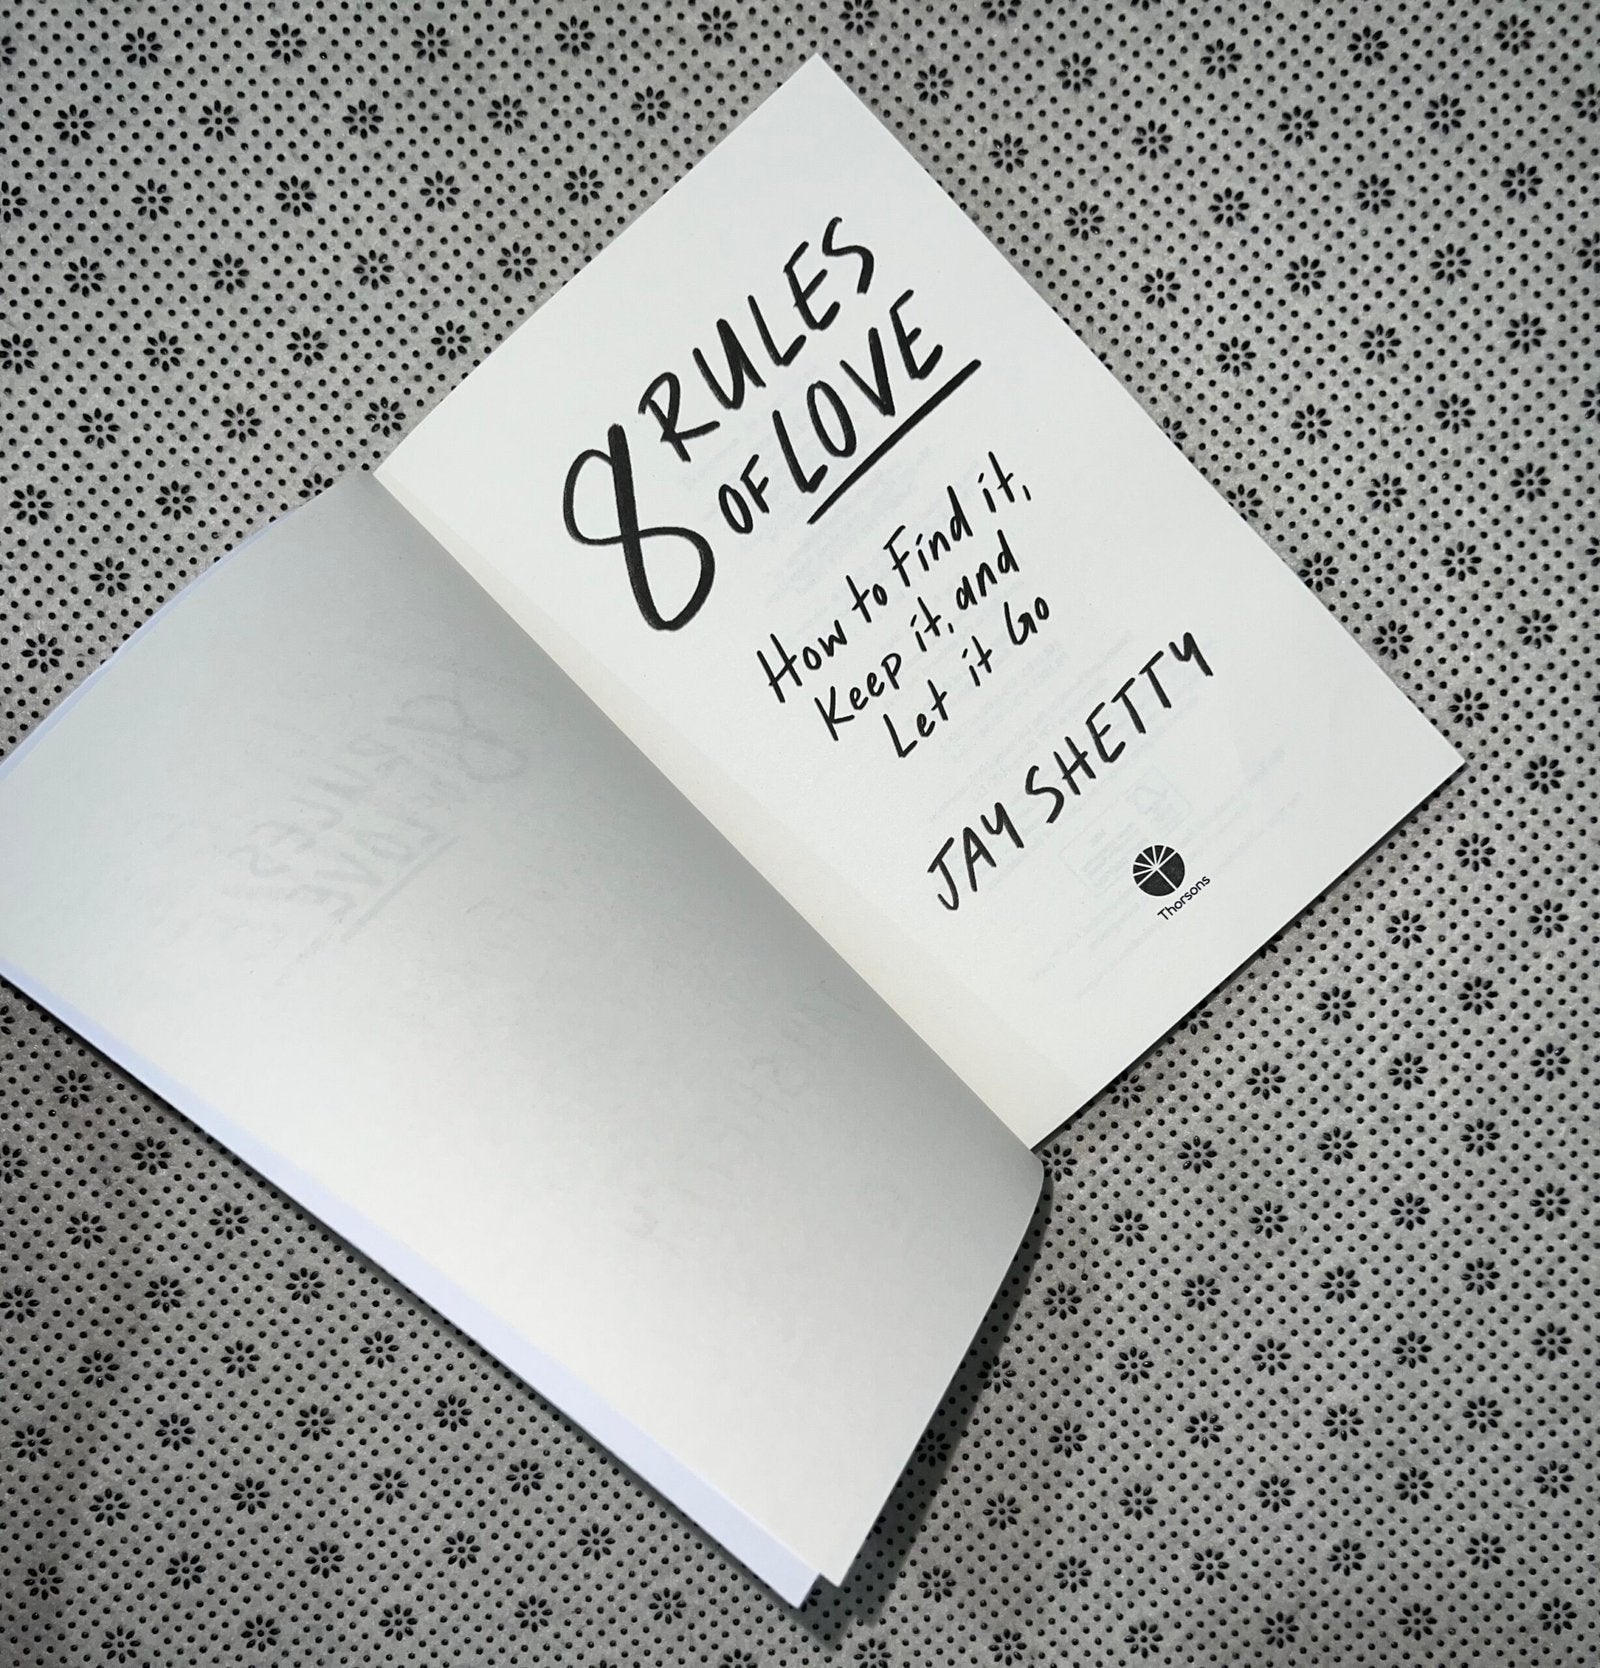 8 RULES
OF LOVE
How to Find it,
Keep it, and
Let it Go
JAY SHETTY
Thorsons